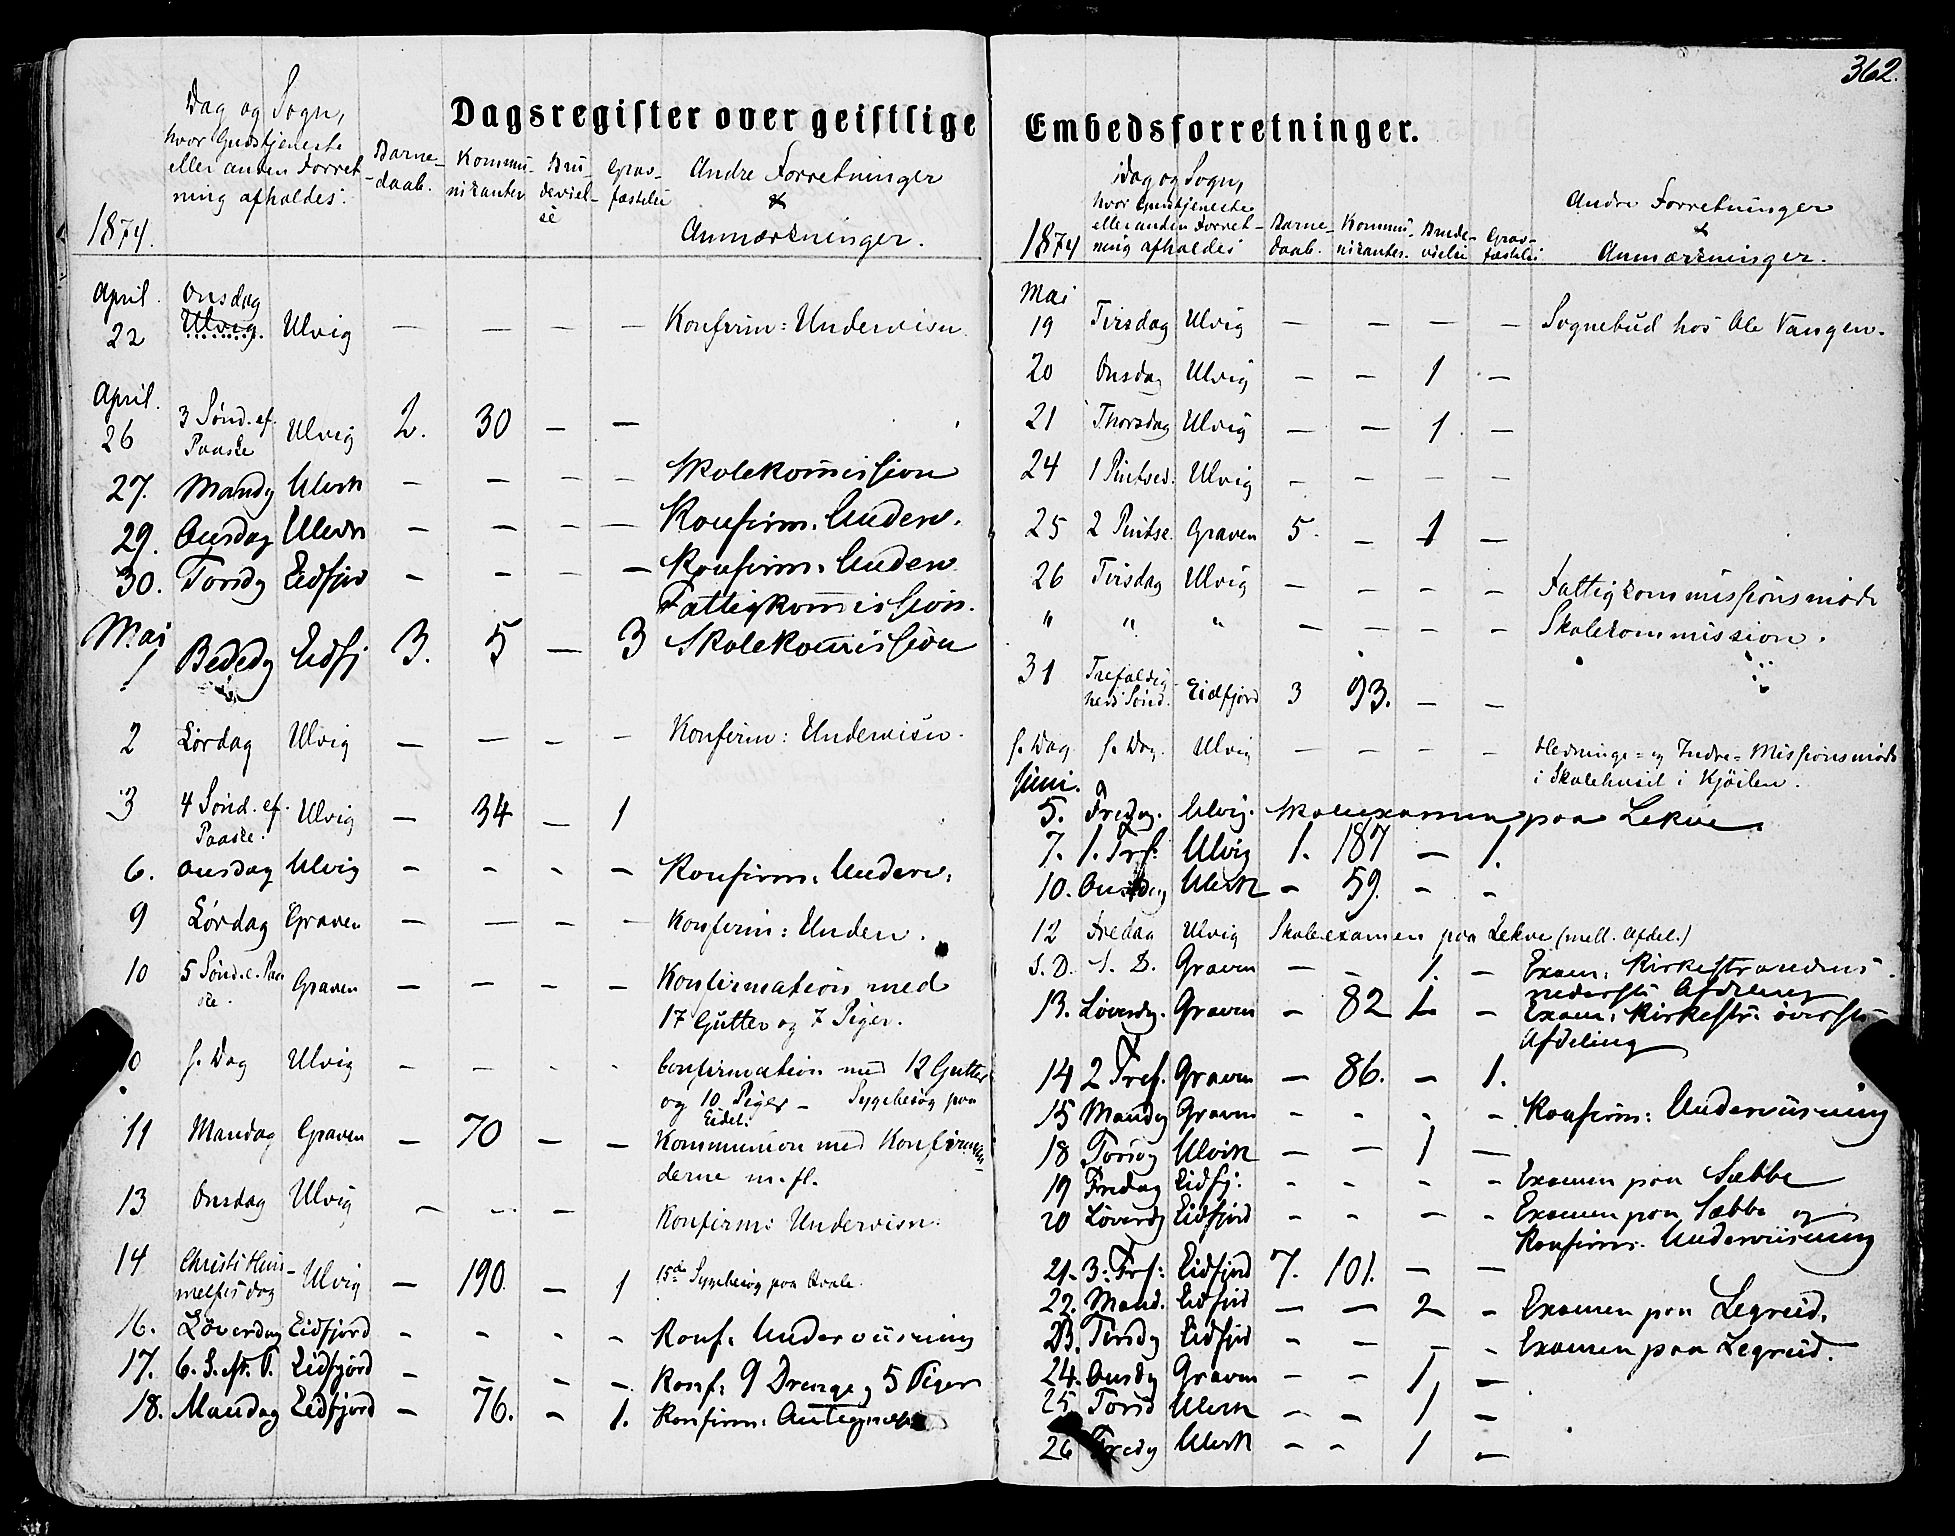 Dagsregister over geistlige
Dag og Sogn,
hvor Gudstjeneste
eller anden Forret-
ning afholdes:
Barne-
daab.
Kommu-
nikanter
Bru-
deviel-
se
Grav-
fæstelse
Andre Forretninger
&
Anmærkninger.
1874.
April. 22 Onsdag Ulvig. Ulvig — — — — Konfirm: Undervisn.
April. 26 3 Sønd. ef. Paaske Ulvig 2. 30 — —
27. Mandg Ulvik - - - - Skolekommission
29. Onsdag Ulvik - - - — Konfirm. Underv.
30. Torsdg Eidfjord - - - — Konfirm. Underv.
Fattigkommission.
Mai 1 Bededg Eidfj 3. 5 — 3 Skolekommission
2 Lørdag Ulvig — — — — Konfirm: Undervisn.
3 4 Sønd. ef. Paaske. Ulvig — 34 — 1
6. Onsdag Ulvig - - - — Konfirm: Underv.
9 Lørdag Graven — — — — Konfirm: Underv.
10 5 Sønd. e. Paaske. Graven — — — — Konfirmation med
17 Gutter og 7 Piger.
10 s. Dag Ulvig - - - - Confirmation med 12 Gutter
og 10 Piger — Sygebesøg paa
Eidet.
11 Mandag Graven — 70 — — Kommunion med Konfirman-
derne m. fl.
13 Onsdag Ulvig — — — Konfirm: Undervisn.
14 Christi Him-
melfartsdag Ulvig — 190. — 1 15de Sygebesøg paa
16. Løverdag Eidfjord - - - - Konf: Underviisning
17. 6. S. eft. P. Eidfjord - - - - Konf: 9 Drenge, 5 Piger
18. Mandag Eidfjord - 76. - 1. Konfirm:
362.
Embedsforretninger.
Dag og Sogn,
hvor Gudstjeneste
eller anden Forret-
ning afholdes
Barne-
daab.
Kommu-
nikanter.
Brude-
vielse
Grav-
fæstelse
Andre Forretninger
&
Anmærkninger.
1874
Mai
19 Tirsdag Ulvig — — — — Sognebud hos Ole Vangen.
20 Onsdag Ulvig — — 1 —
21 Thorsdag Ulvig — — 1. —
24 1 Pintsed. Ulvig — — — —
25 2 Pintse. Graven 5. — 1 —
26 Tirsdag Ulvig — — — — Fattigkommissionsmøde
" " " — — — — Skolekommission.
31 Trefoldig-
heds Sønd. Eidfjord 3 93. — —
s. Dag s. Dag. Ulvig — — — — Hedninge- og Indre-Missionsmøde
i Skolehuset i Kjøilen.
Juni.
5. Fredag. Ulvig. Skoleexamen paa Lekve.
7. 1. Trf: Ulvig 1. 187 — 1.
10. Onsdag Ulvik - 59. - -
12 Fredag Ulvig Skoleexamen paa Lekve (mell. Afdel.)
S. D. S. D. Graven — — 1. — Exam: Kirkestrandens
nederste Afdeling
13. Løverdg. Graven - 82 1 - Exam: Kirkestr. øverste
Afdeling
14 2 Tref. Graven — 86. — 1.
15 Mandag Graven - - - - Konfirm: Underviisning
18 Torsdg Ulvik — — 1 —
19 Fredag Eidfj. - - - - Examen paa Sæbbe
20 Løverdg Eidfjord - - - - Examen paa Sæbbe og
Konfirm. Underviisning
21. 3. Trf: Eidfjord 7. 101. — —
22. Mand. Eidfjord — — 2 - Examen paa Legreid.
23. Tirsdg Eidfjord - - - - Examen paa Legreid.
24. Onsdg Graven - - 1, —
25 Torsd Ulvik - - 1 —
26 Fredg Ulvik - - 1 —